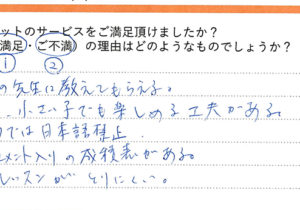 ットのサービスをご満足頂けましたか？
満足・ご不満）の理由はどのようなものでしょうか？
① ②
の先生に教えてもらえる。
小さい子でも楽しめる工夫がある。
では日本語禁止
メント入りの成績表がある。
レッスンが とりにくい。